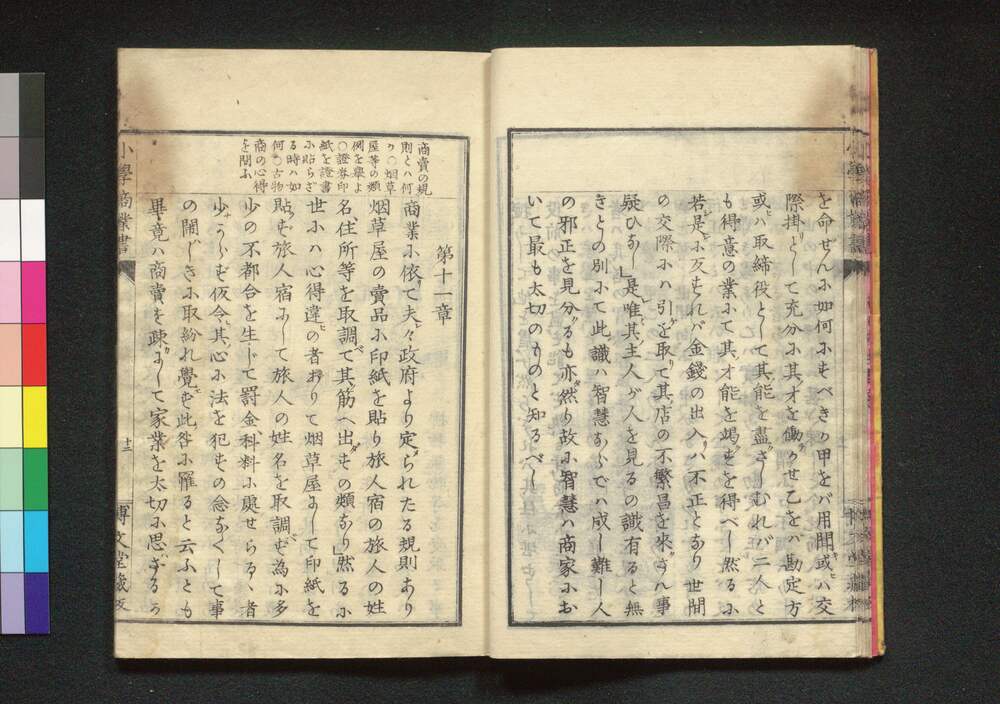 を命ぜんに如何にすべきか甲をバ用聞或ハ交
際掛りとして充分に其才を働かせ乙をハ勘定方
或ハ取締役として其能を盡さしむれバ二人と
も得意の業にて其才能を竭すを得べし然るに
若是に反すれバ金錢の出入ハ不正となり世間
の交際にハ引を取りて其店の不繁昌を來さん事
疑ひなし」是唯其主人が人を見るの識有ると無
きとの別にて此識ハ智慧ならでハ成し難し人
の邪正を見分るも亦然り故に智慧ハ商家にお
いて最も太切のものと知るべし
商賣の規
則とハ何
か○烟草
屋等の類
例を舉よ
○證券印
紙を證書
に貼らざ
る時ハ如
何○古物
商の心得
を問ふ
第十一章
商業に依て夫々政府より定られたる規則あり
烟草屋の賣品に印紙を貼り旅人宿の旅人の姓
名住所等を取調て其筋へ出すの類なり」然るに
世にハ心得違の者ありて烟草屋にして印紙を
貼ず旅人宿にして旅人の姓名を取調ず為に多
少の不都合を生じて罰金科料に處せらるゝ者
少からず仮令其心に法を犯すの念なくして事
の鬧しきに取紛れ覺ず此咎に罹ると云ふとも
畢竟ハ商賣を疎にして家業を太切に思ハざるか
小學商業書
十二
博文堂藏版